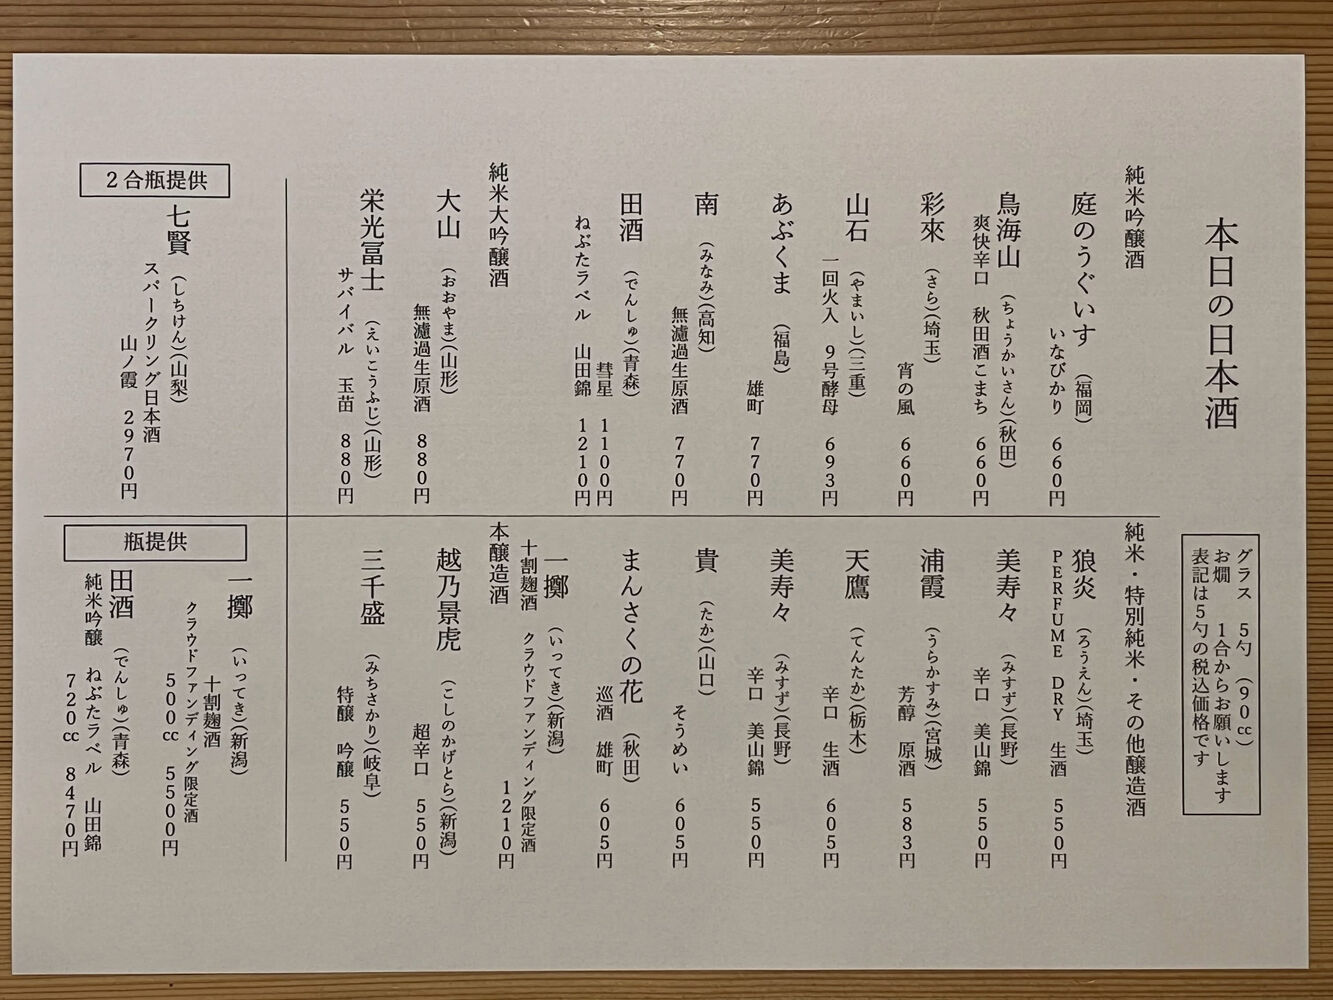 本日の日本酒
グラス　5勺　（90cc）
お燗　1合からお願いします
表記は5勺の税込価格です
純米吟醸酒
庭のうぐいす　（福岡）
いなびかり　660円
鳥海山　（ちょうかいさん）（秋田）
爽快辛口　秋田酒こまち　660円
彩來　（さら）（埼玉）
宵の風　660円
山石　（やまいし）（三重）
一回火入　9号酵母　693円
あぶくま　（福島）
雄町　770円
南　（みなみ）（高知）
無濾過生原酒　770円
田酒　（でんしゅ）（青森）
彗星　1100円
ねぶたラベル　山田錦　1210円
純米大吟醸酒
大山　（おおやま）（山形）
無濾過生原酒　880円
栄光冨士　（えいこうふじ）（山形）
サバイバル　玉苗　880円
純米・特別純米・その他醸造酒
狼炎　（ろうえん）（埼玉）
PERFUME　DRY　生酒　550円
美寿々　（みすず）（長野）
辛口　美山錦　550円
浦霞　（うらかすみ）（宮城）
芳醇　原酒　583円
天鷹　（てんたか）（栃木）
辛口　生酒　605円
美寿々　（みすず）（長野）
辛口　美山錦　550円
貴　（たか）（山口）
そうめい　605円
まんさくの花　（秋田）
巡酒　雄町　605円
一擲　（いってき）（新潟）
十割麹酒　クラウドファンディング限定酒
1210円
本醸造酒
越乃景虎　（こしのかげとら）（新潟）
超辛口　550円
三千盛　（みちさかり）（岐阜）
特醸　吟醸　550円
2合瓶提供
七賢　（しちけん）（山梨）
スパークリング日本酒
山ノ霞　2970円
瓶提供
一擲　（いってき）（新潟）
十割麹酒
クラウドファンディング限定酒
500cc　5500円
田酒　（でんしゅ）（青森）
純米吟醸　ねぶたラベル　山田錦
720cc　8470円